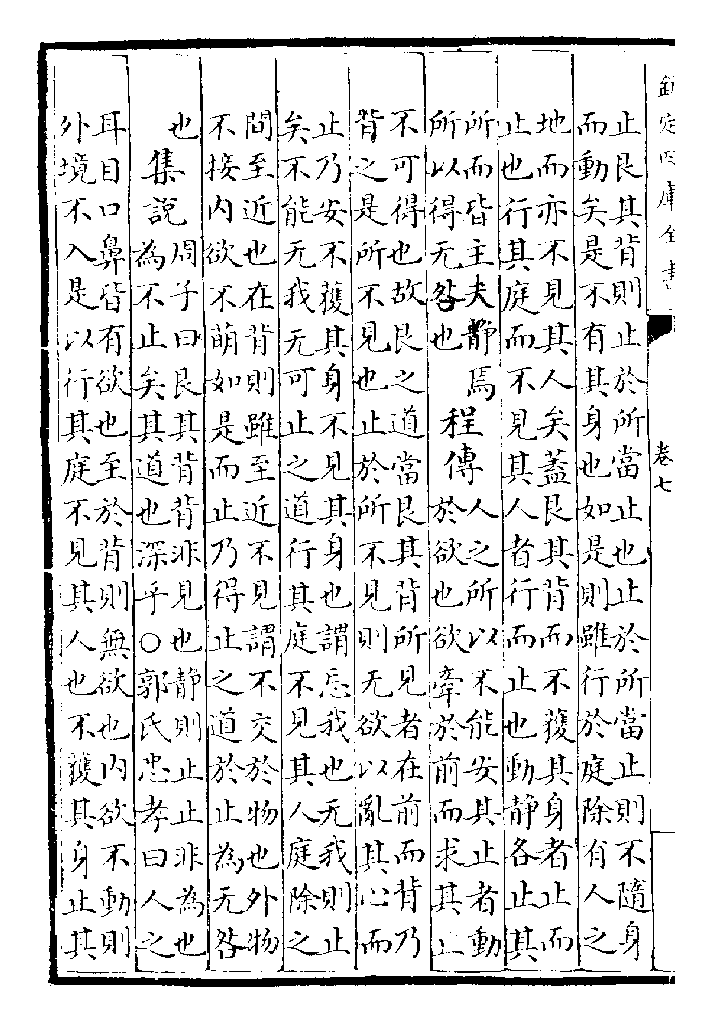 欽定四庫全書
卷七
止艮其背則止於所當止也止於所當止則不隨身
而動矣是不有其身也如是則雖行於庭除有人之
地而亦不見其人矣蓋艮其背而不獲其身者止而
止也行其庭而不見其人者行而止也動靜各止其
所而皆主夫靜焉
所以得无咎也
程傳
人之所以不能安其止者動
於欲也欲牽於前而求其止
不可得也故艮之道當艮其背所見者在前而背乃
背之是所不見也止於所不見則无欲以亂其心而
止乃安不獲其身不見其身也謂忘我也无我則止
矣不能无我无可止之道行其庭不見其人庭除之
間至近也在背則雖至近不見謂不交於物也外物
不接内欲不萌如是而止乃得止之道於止為无咎
也
集說
周子曰艮其背背非見也靜則止止非為也
為不止矣其道也深乎○郭氏忠孝曰人之
耳目口鼻皆有欲也至於背則無欲也内欲不動則
外境不入是以行其庭不見其人也不獲其身止其